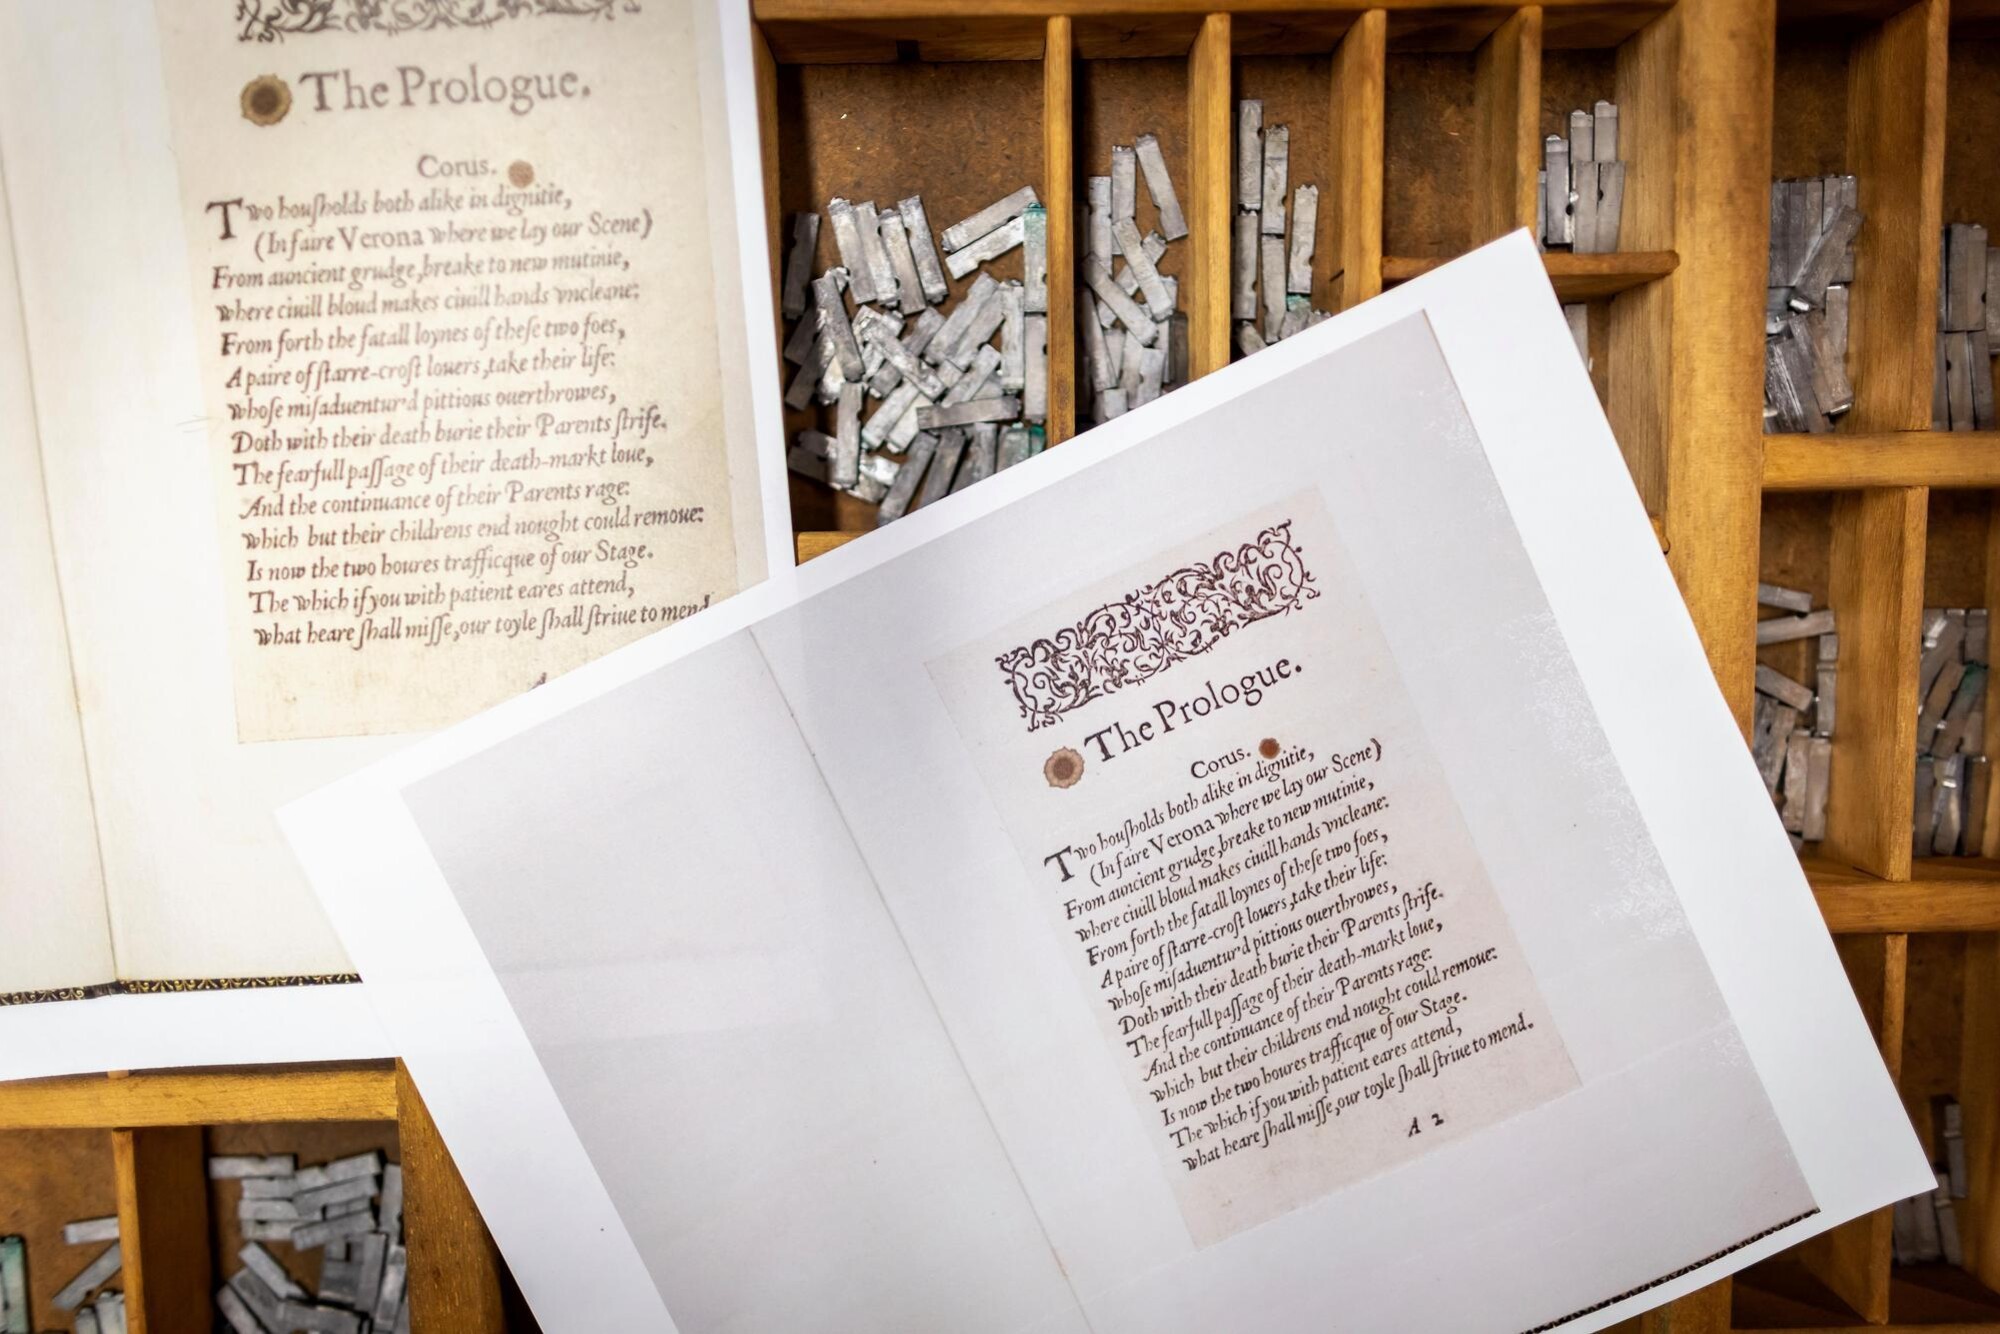 The Prologue.
Corus.
Two houſholds both alike in dignitie,
(In faire Verona where we lay our Scene)
From auncient grudge, breake to new mutinie,
where ciuill bloud makes ciuill hands vncleane:
From forth the fatall loynes of theſe two foes,
A paire of ſtarre-croſt louers, take their life:
whoſe miſaduentur'd pittious ouerthrowes,
Doth with their death burie their Parents ſtrife.
The fearfull paſſage of their death-markt loue,
And the continuance of their Parents rage:
which but their childrens end nought could remoue:
Is now the two houres trafficque of our Stage.
The which if you with patient eares attend,
what heare ſhall miſſe, our toyle ſhall ſtriue to mend
The Prologue.
Corus.
Two houſholds both alike in dignitie,
(In faire Verona where we lay our Scene)
From auncient grudge, breake to new mutinie,
where ciuill bloud makes ciuill hands vncleane:
From forth the fatall loynes of theſe two foes,
A paire of ſtarre-croſt louers, take their life:
whoſe miſaduentur'd pittious ouerthrowes,
Doth with their death burie their Parents ſtrife.
The fearfull paſſage of their death-markt loue,
And the continuance of their Parents rage:
which but their childrens end nought could remoue:
Is now the two houres trafficque of our Stage.
The which if you with patient eares attend,
what heare ſhall miſſe, our toyle ſhall ſtriue to mend.
A 2